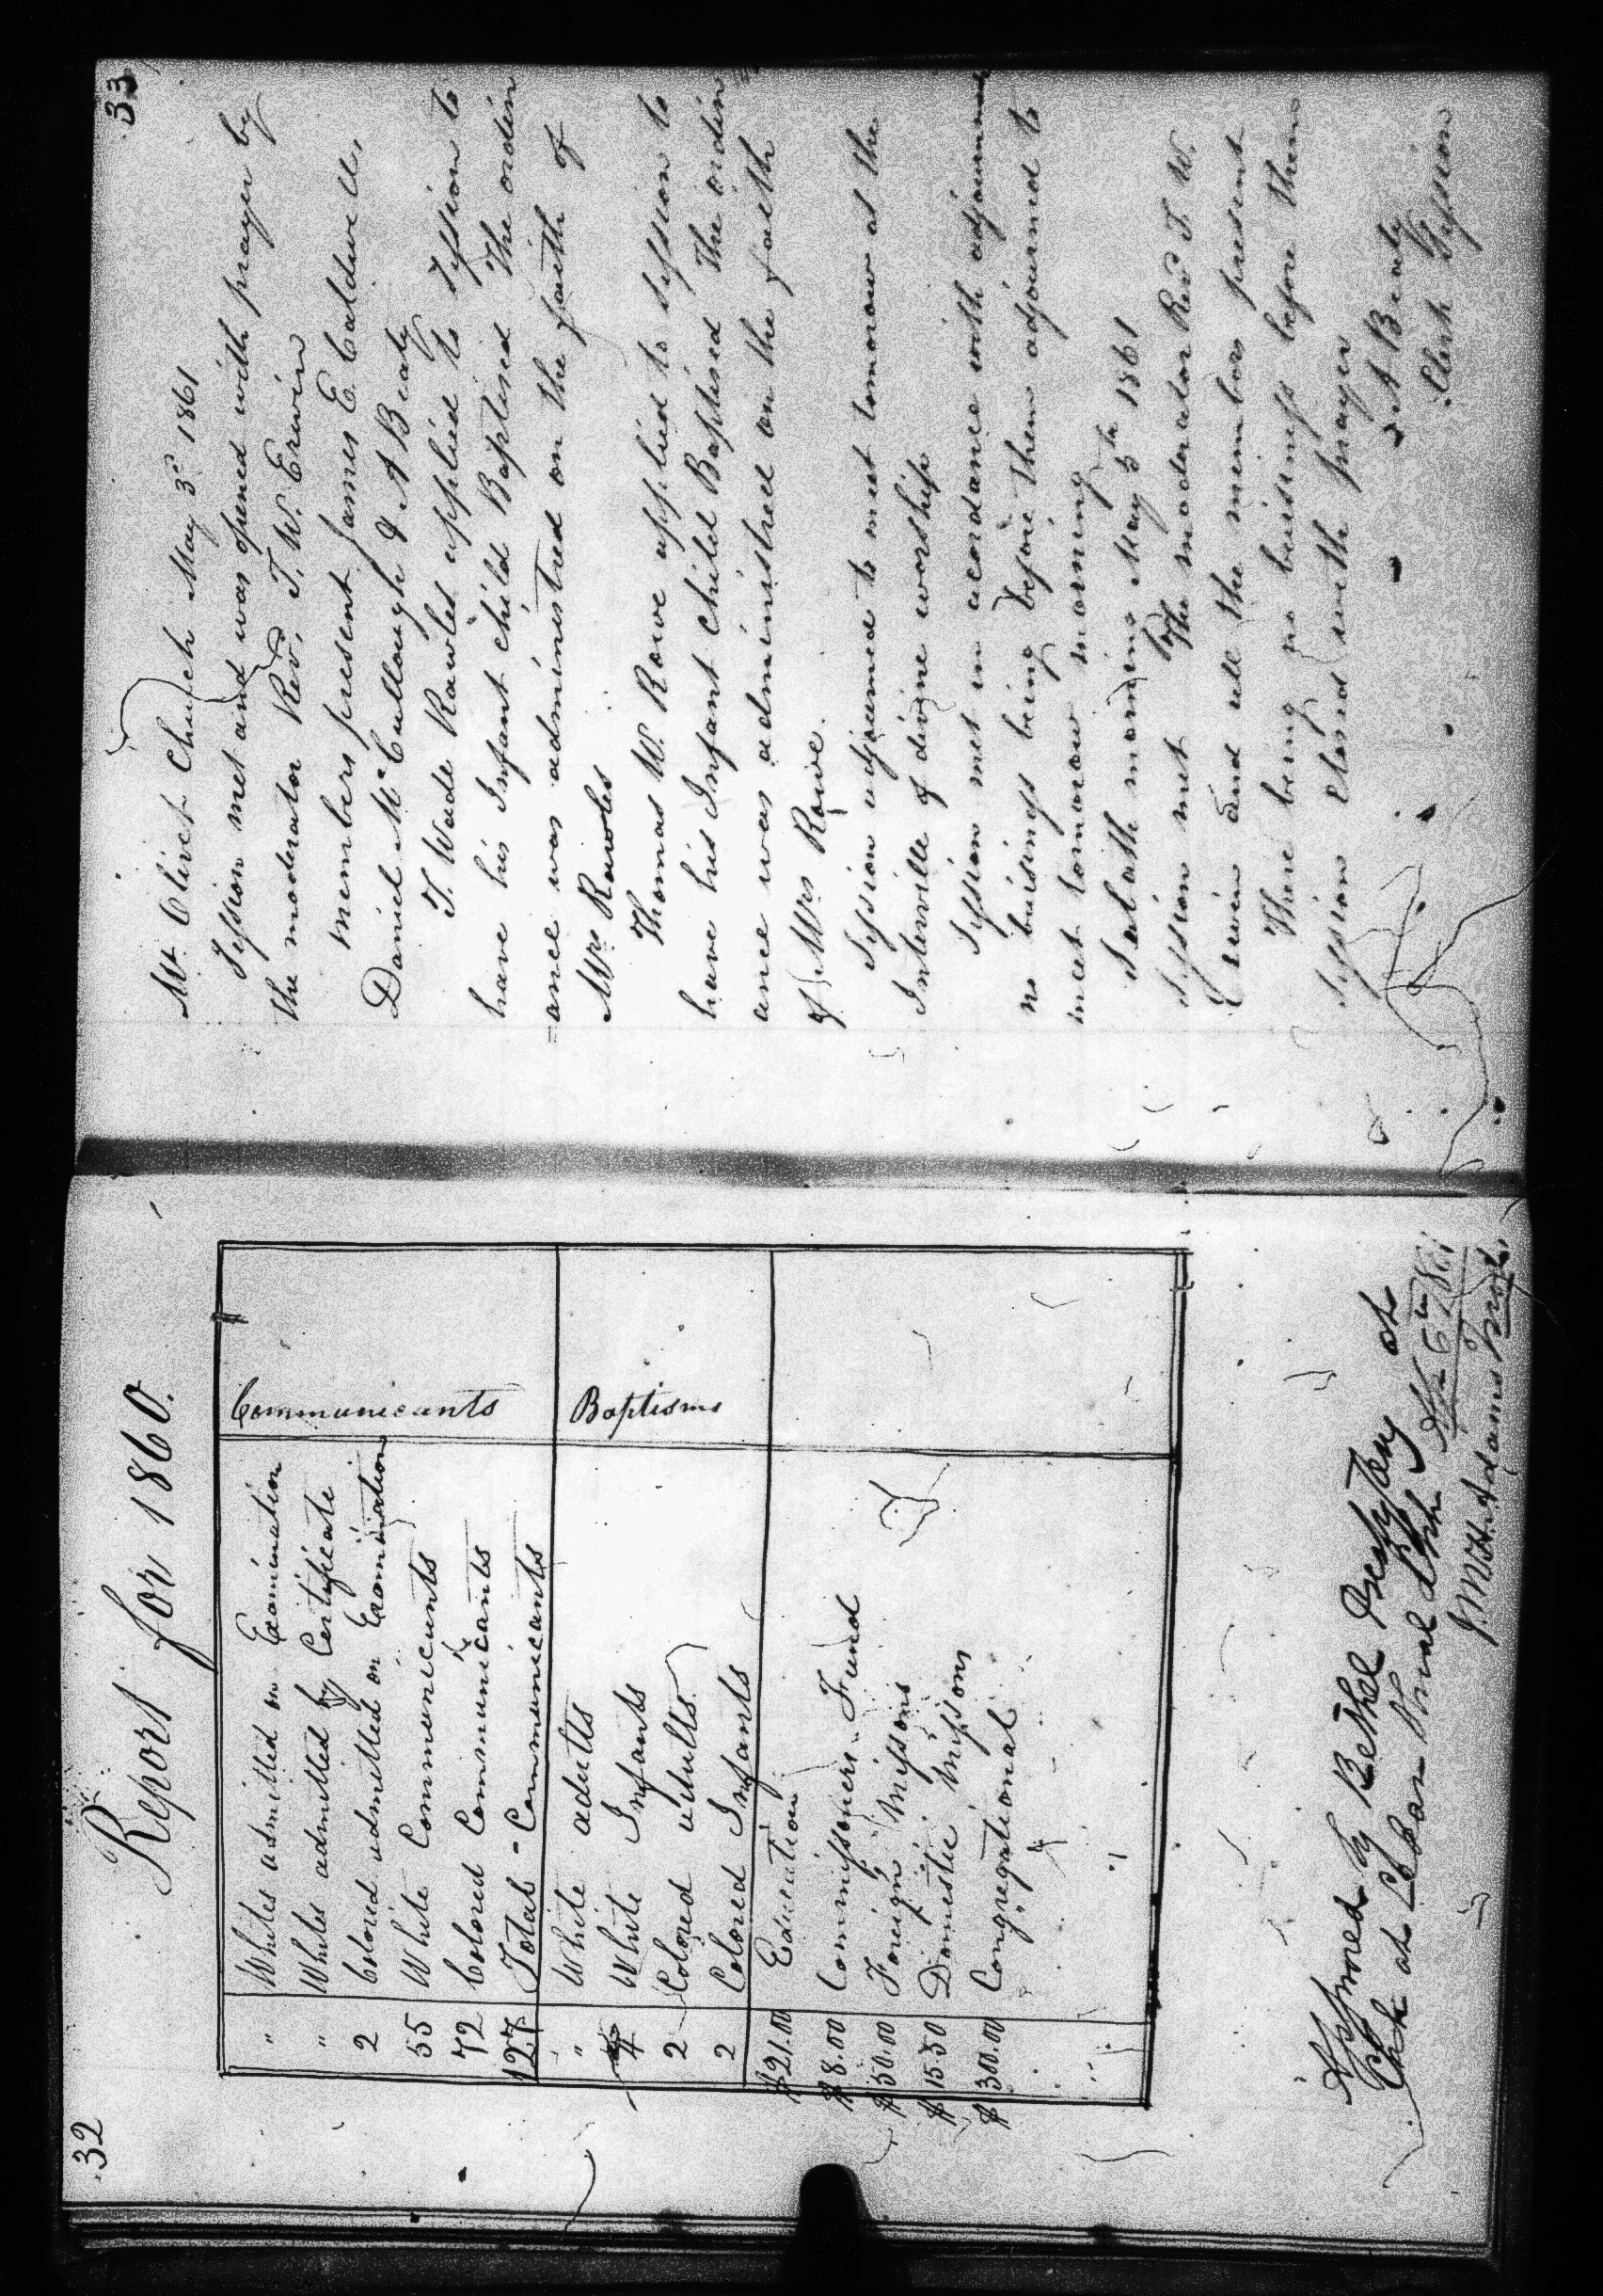 32
Report for 1860.
" Whites admitted on Examination Communicants
" Whites admitted by Certificate
2 Colored admitted on Examination
55 White Communicants
72 Colored Communicants
127 Total - Communicants
" White adults Baptisms
4 White Infants
2 Colored adults
2 Colored Infants
$21.00 Education
$8.00 Commissioners Fund
$50.00 Foreign Missions
$15.50 Domestic Missions
$300.00 Congregational
Approved by Bethel Presbytery at
at Lebanon
6th 1861
J. M. H. Adams
33
Mt. Olivet Church May 3d 1861
Session met and was opened with prayer by
the moderator Rev. T. W. Erwin
members present James E. Caldwell,
Daniel McCullough & J A Beaty
T. Wade Rawls applied to Session to
have his Infant child Baptised The ordin
=ance was administred on the faith of
Mrs Rawles
Thomas W. Rowe applied to Session to
have his Infant child Baptised The ordin
ance was administred on the faith
of Mrs Rowe.
Session adjourned to meet tomorow at the
Interville of divine worship
Session met in accordance with adjournment
no buisiness being before them adjourned to
meet tomorow morning
Sabath morning May 5th 1861
Session met The moderator Rev T. W.
Erwin and all the members present
There being no buisness before them
Session closed with prayer
J A Beaty
Clerk Session